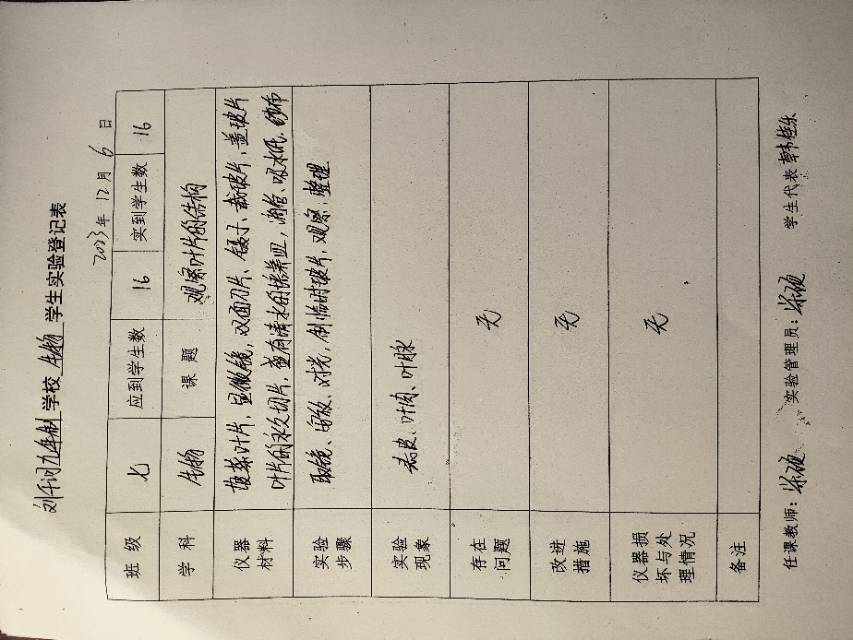 刘千问九年制学校 生物 学生实验登记表
2023年 12月 6日
班级 七 应到学生数 16 实到学生数 16
学科 生物 课题 观察叶片的结构
仪器材料 菠菜叶片，显微镜，双面刀片、镊子、载玻片，盖玻片
叶片的永久切片，盛有清水的培养皿，滴管、吸水纸、纱布
实验步骤 取镜、安放、对光，制临时玻片、观察，整理
实验现象 表皮、叶肉、叶脉
存在问题 无
改进措施 无
仪器损坏与处理情况 无
备注
任课教师： 实验管理员： 学生代表